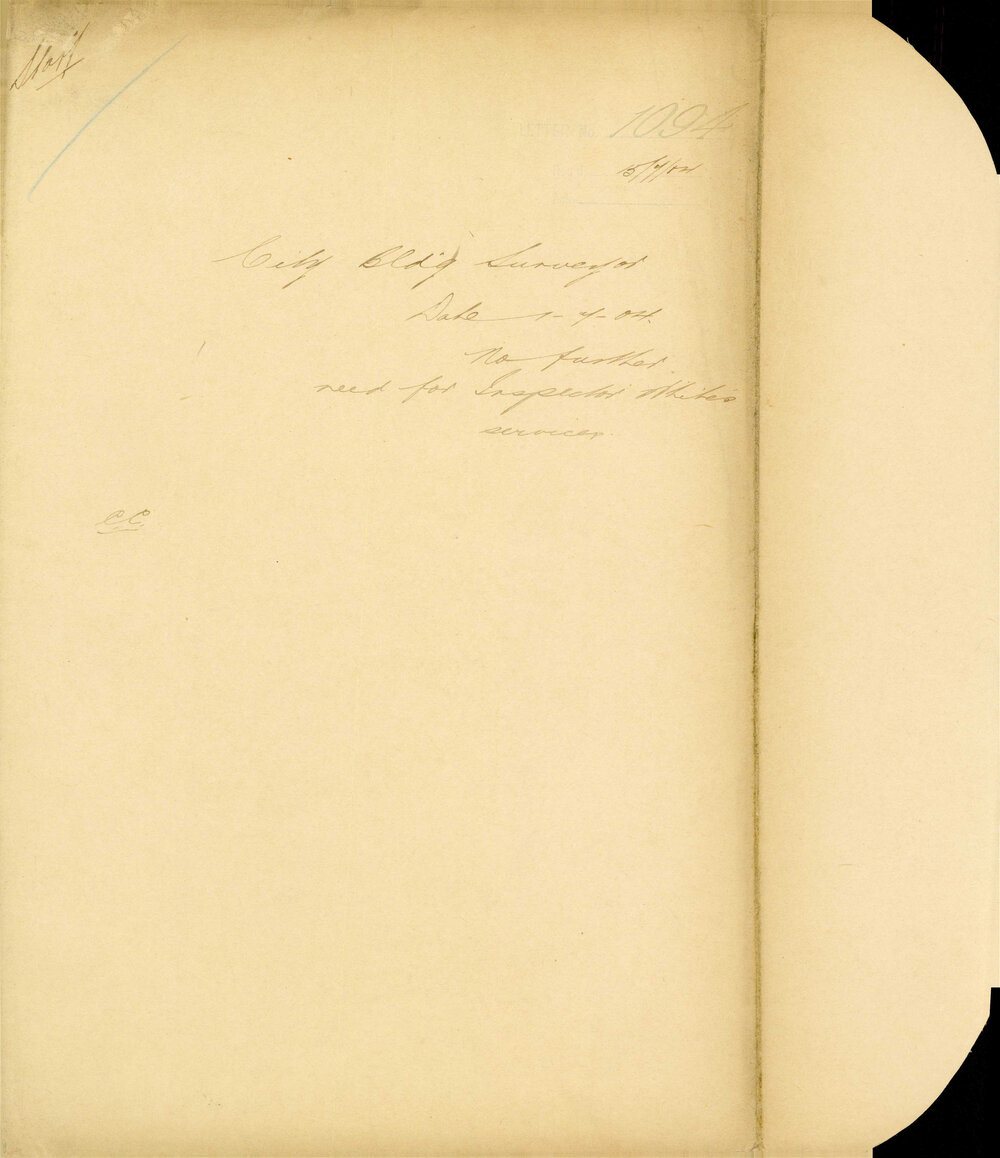 Staff
1094
15/7/04
City Bldg Surveyor
Date 1-7-04.
No further
need for Inspector White's
services.
CC